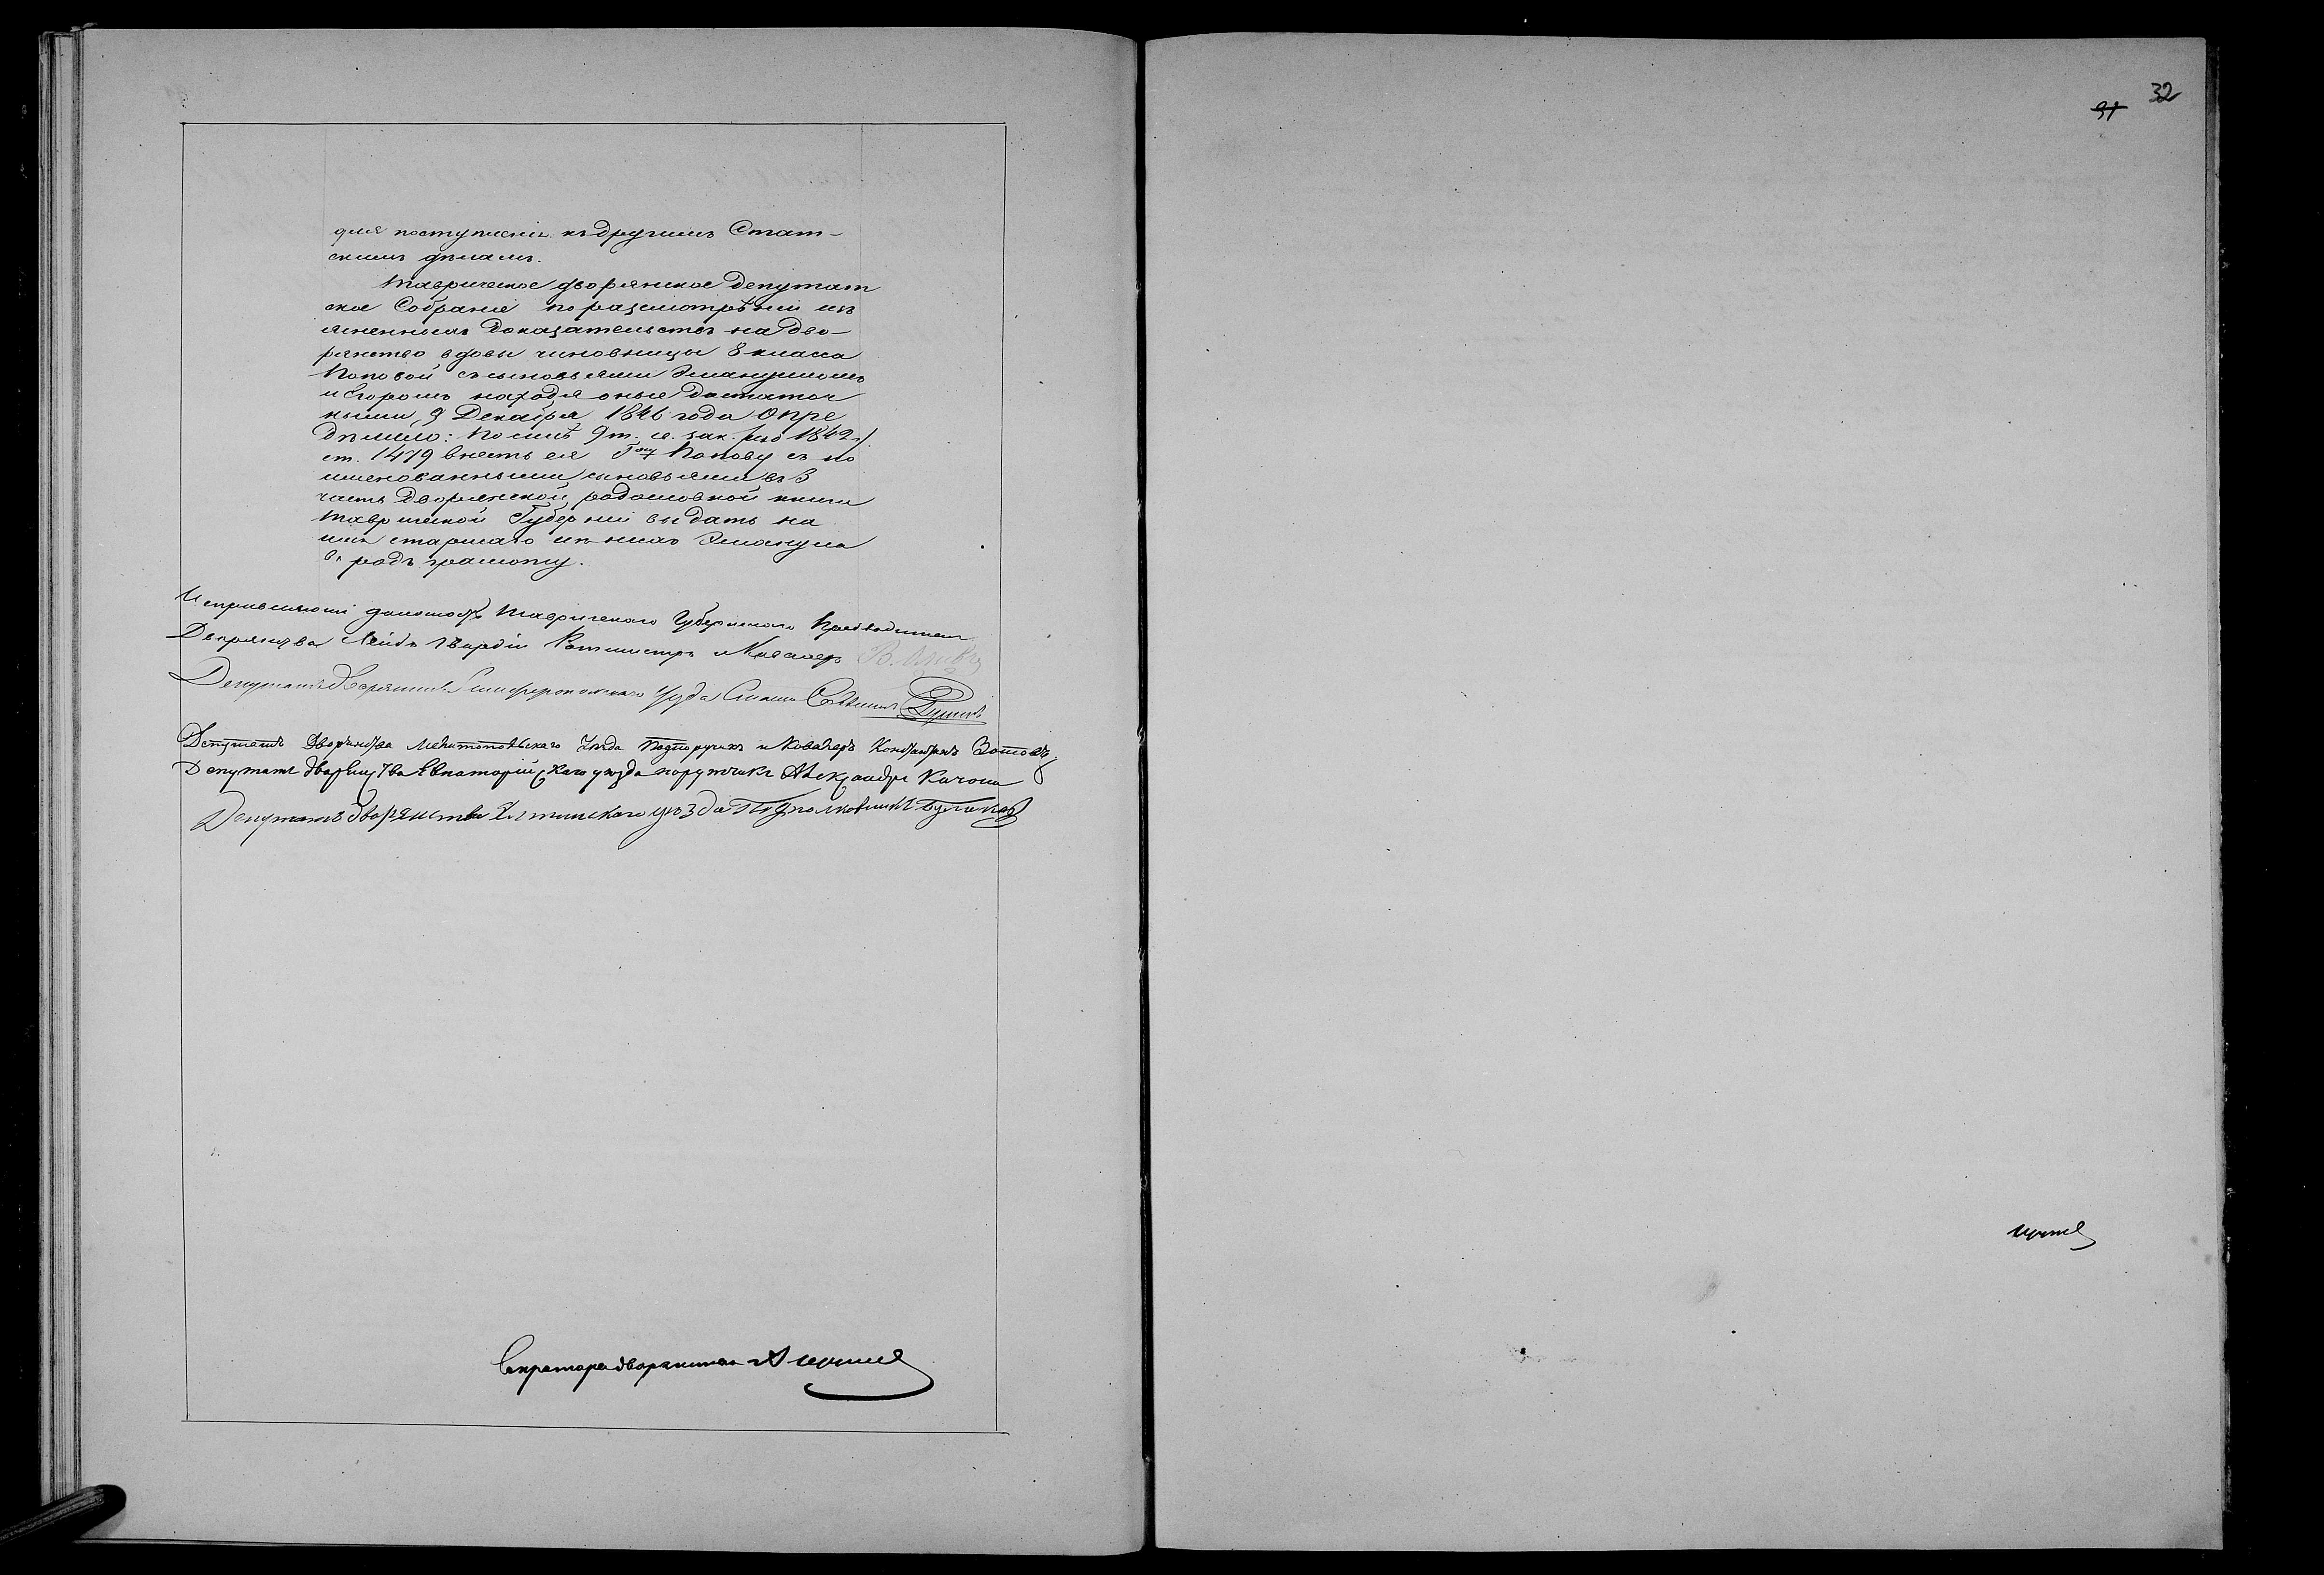 для поступленія къ другимъ Стат-
скимъ дѣламъ.
Таврическое дворянское Депутат
ское Собраніе по разсмотрѣніи изъ
ясненныхъ Доказательствъ на Дво-
рянство вдовы чиновницы 8 класса
Поповой съ сыновьями Эмануиломъ
и Егоромъ находя оные Достаточ
ными, 9 Декабря 1846 года Опре
Дѣлило: По силѣ 9 т. св. зак. /изд 1842 г/
ст. 1479 внесть ея Г-жу Попову съ по
именованными сыновьями въ 3
часть Дворянской родословной книги
Таврической Губерніи выдать на
имя старшаго изъ нихъ Эмануила
въ родъ грамоту.
Исправляющій должность Таврическаго Губернскаго Предводителя
Дворянства Лейбъ Гвардіи Ротмистръ и Кавалеръ В.
Депутатъ дворянства Симферопольскаго Уѣзда Статскій Совѣтникъ
Депутатъ Дворянства Мелитопольскаго Уѣзда Подпоручикъ и Кавалеръ Константинъ Зотовъ
Депутатъ дворянства Евпаторійскаго уѣзда поручикъ Александръ Качони
Депутатъ дворянства Ялтинскаго уѣзда Подполковникъ
Секретарь дворянства А
32
31